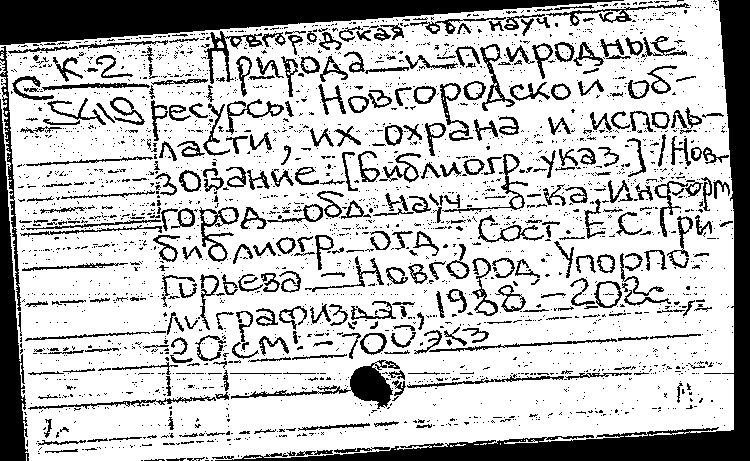 Новгородская обл. науч. б-ка
К-2
5419
Природа и природные
ресурсы Новгородской об-
ласти, их охрана и исполь-
зование: [Библиогр. указ.] / Нов-
город. обл. науч. б-ка, Информ.
библиогр. отд.; Сост. Е.С. Гри-
горьева. – Новгород: Упорпо-
лиграфиздат, 1988. – 208 с.;
20 см. – 700 экз